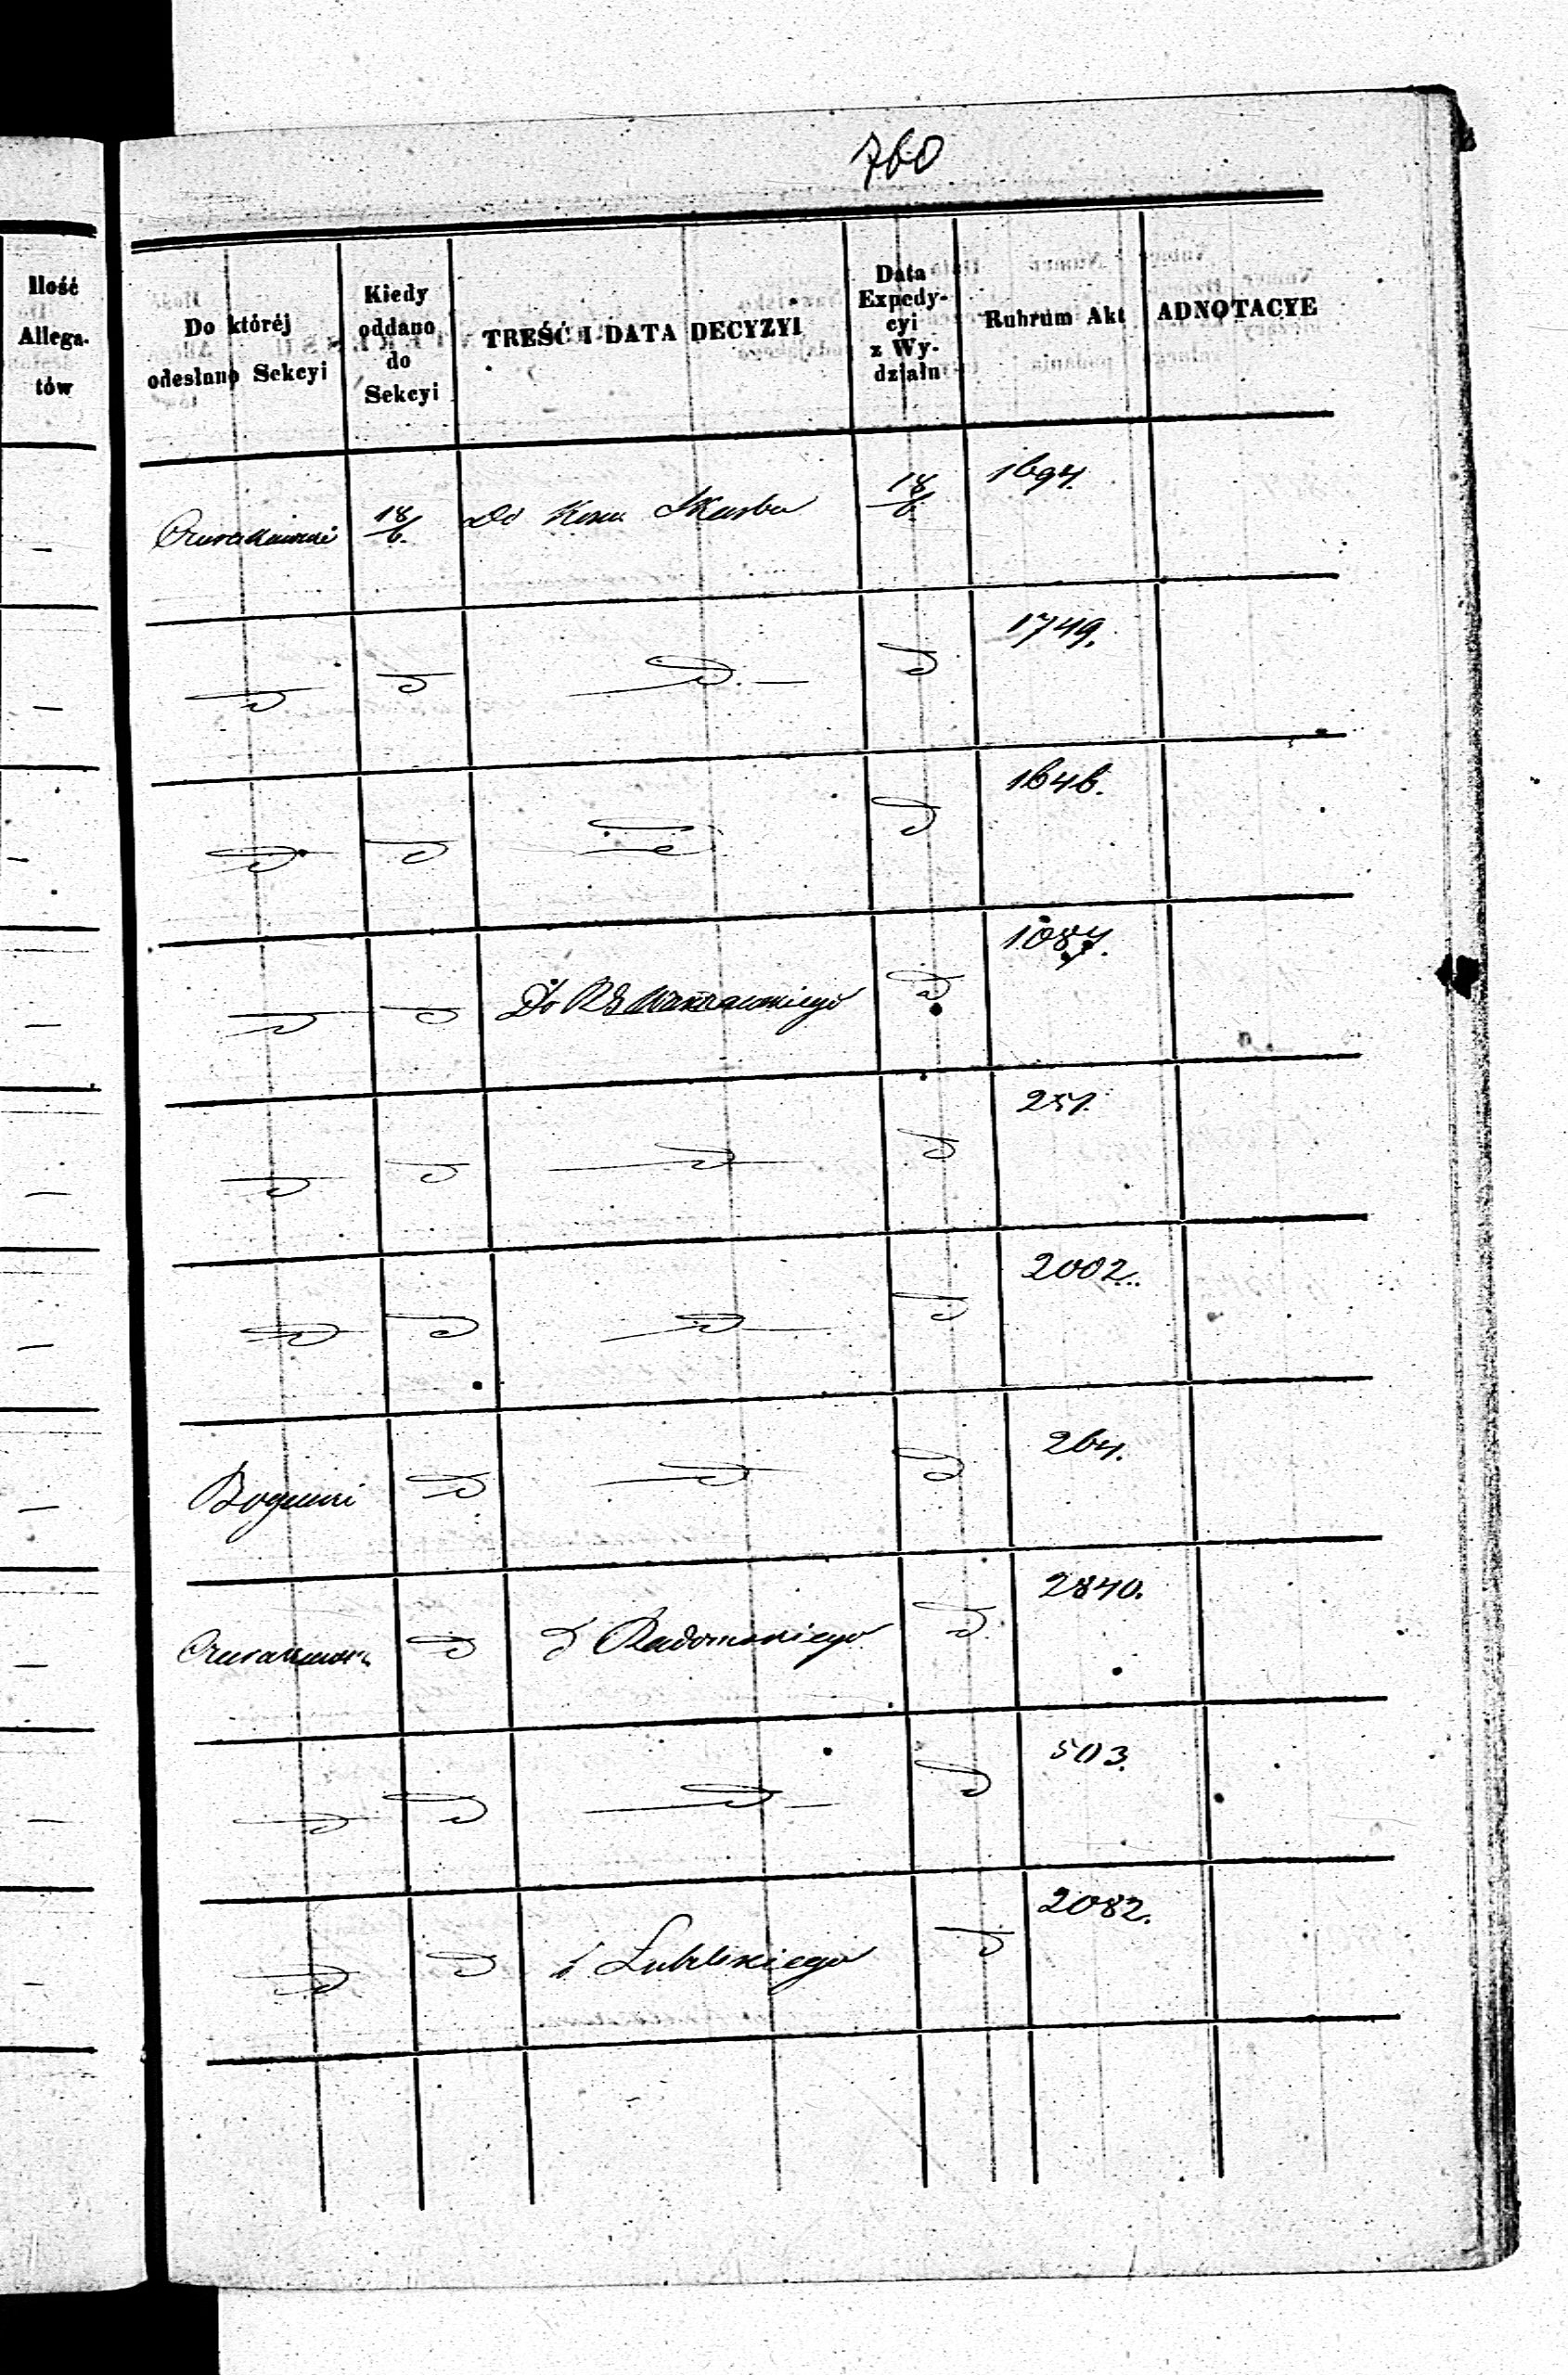 760
Ilość
Allega-
tów
Do któréj
odesłano Sekcyi
Kiedy
oddano
do
Sekcyi
TREŚĆ I DATA DECYZYI
Data
Expedy-
cyi
z Wy-
działu
Rubrum Akt
ADNOTACYE
18/6. Do Kom Skarbu 18/6. 1694.
1749.
1646.
Do RG Warszawskiego 1087.
251.
2002.
264.
Radomskiego 2840.
503.
Lubelskiego 2082.